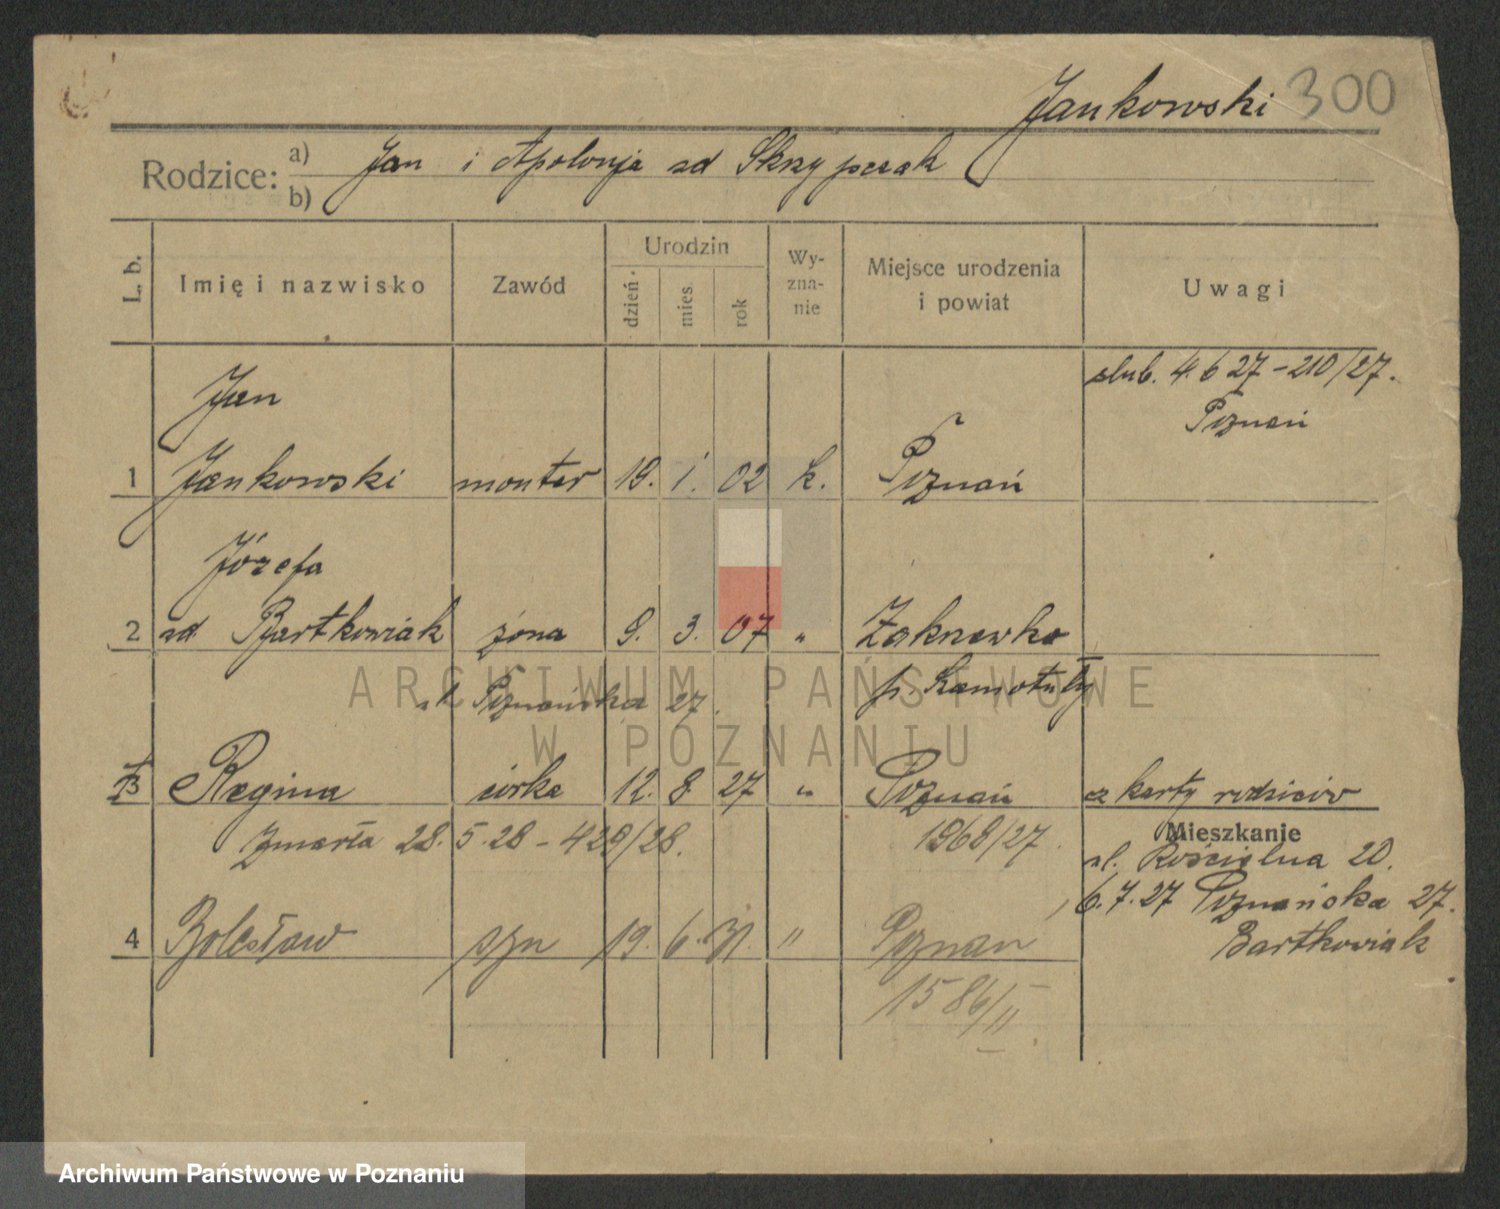 Jankowski 300
Rodzice: a) b) Jan i Apolonja zd Skrzypczak
L. b. Imię i nazwisko Zawód Urodzin dzień mies. rok Wy-zna-nie Miejsce urodzenia i powiat Uwagi
ślub. 4.6 27 - 210/27.
Poznań
Jan
1 Jankowski monter 19. 1. 02 k. Poznań
Józefa
2 zd Bartkowiak żona 9. 3. 07 " 
p. Szamotuły
Poznańska 27.
3 Regina córka 12. 8. 27 " Poznań z karty rodziców
zmarła 28. 5. 28 - 429/28. 1968/27.
Mieszkanie
ul. Kościelna 20.
6.7.27 Poznańska 27.
Bartkowiak
4 Bolesław syn 19. 6. 31. " Poznan
1586/II
ARCHIWUM PAŃSTWOWE
W POZNANIU
Archiwum Państwowe w Poznaniu